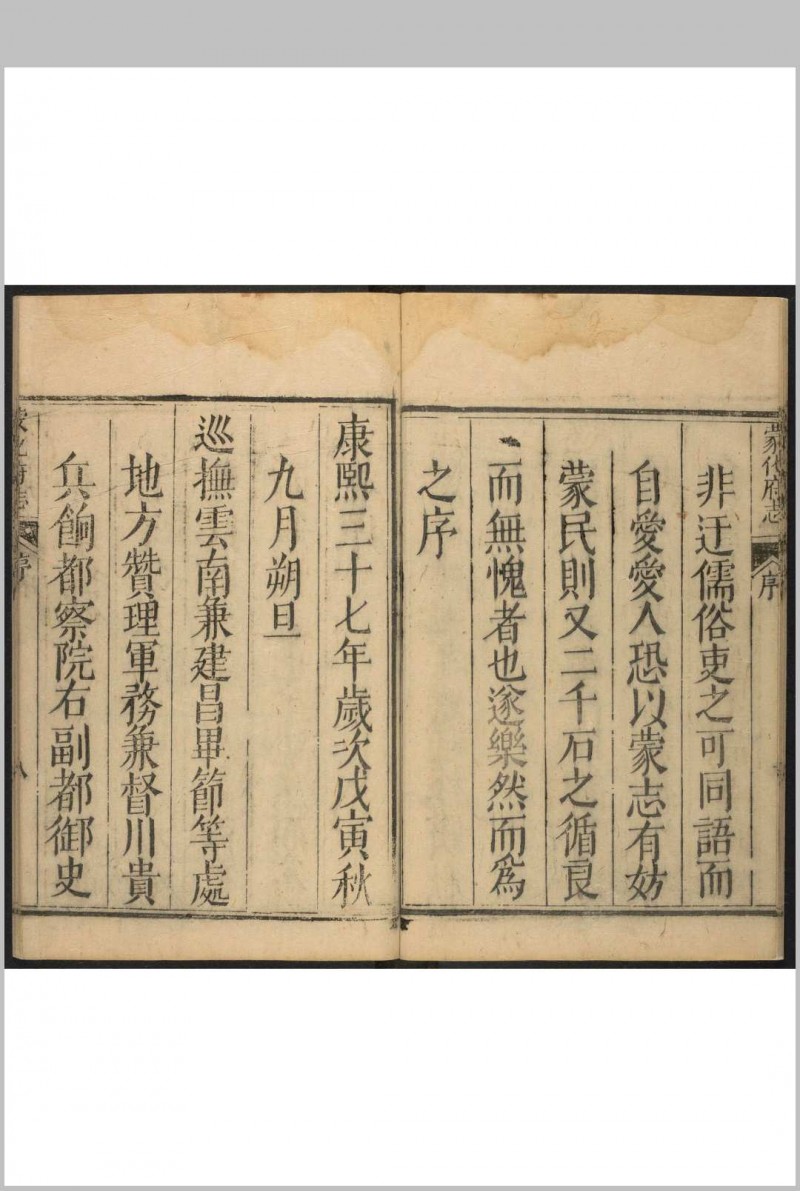 蒙化府志
序
非迂儒俗吏之可同語而
自愛愛人恐以蒙志有妨
蒙民則又二千石之循良
而無愧者也遂樂然而爲
之序
康熙三十七年歲次戊寅秋
九月朔旦
巡撫雲南兼建昌畢節等處
地方贊理軍務兼督川貴
兵餉都察院右副都御史
序
八